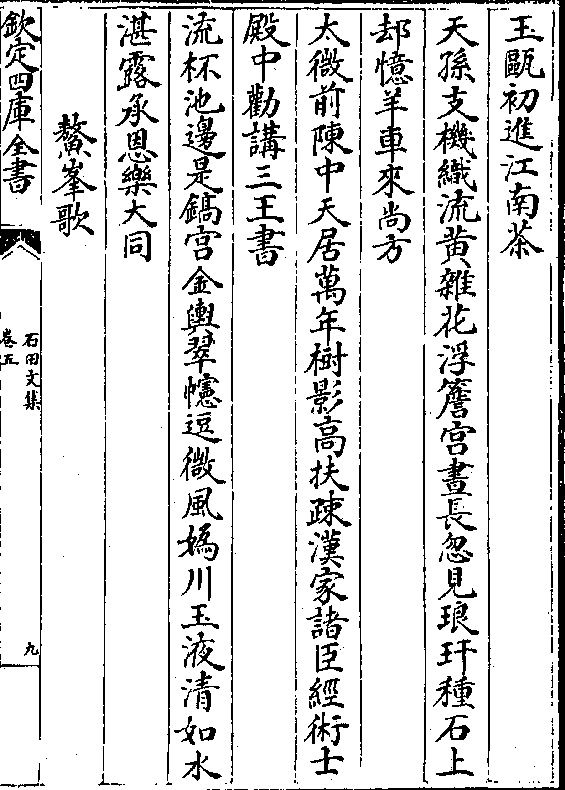 玉甌初進江南茶
天孫支機織流黄雜花浮簷宫晝長忽見琅玕種石上
却憶羊車來尚方
太微前陳中天居萬年樹影高扶疎漢家諸臣經術士
殿中勸講三王書
流杯池邊是鎬宫金輿翠幰逗微風媯川玉液清如水
湛露承恩樂大同
鰲峯歌
欽定四庫全書
石田文集
卷五
九